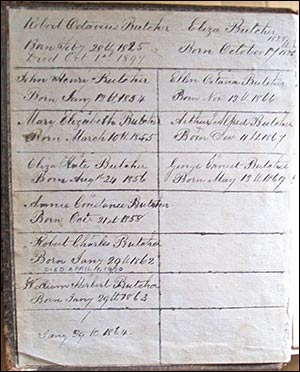 Robert Octavius Butcher
Born Feby 20th 1825
Died Oct 1st 1897
Eliza Butcher
Born October 17
John Henri Butcher
Born Jany 13th 1854
Mary Elizabeth Butcher
Born March 10th 1855
Eliza Kate Butcher
Born Augst 24 1856
Annie Constance Butcher
Born Octr 21st 1858
Robert Charles Butcher
Born Jany 29th 1862
DIED APRIL
William Herbert Butcher
Born Jany 29th 1863
Jany 29th 1864
Ellen Octavia Butcher
Born Nov 13th 1866
Arthur Alfred Butcher
Born Dec 11th 1867
George Ernest Butcher
Born May 13th 1869